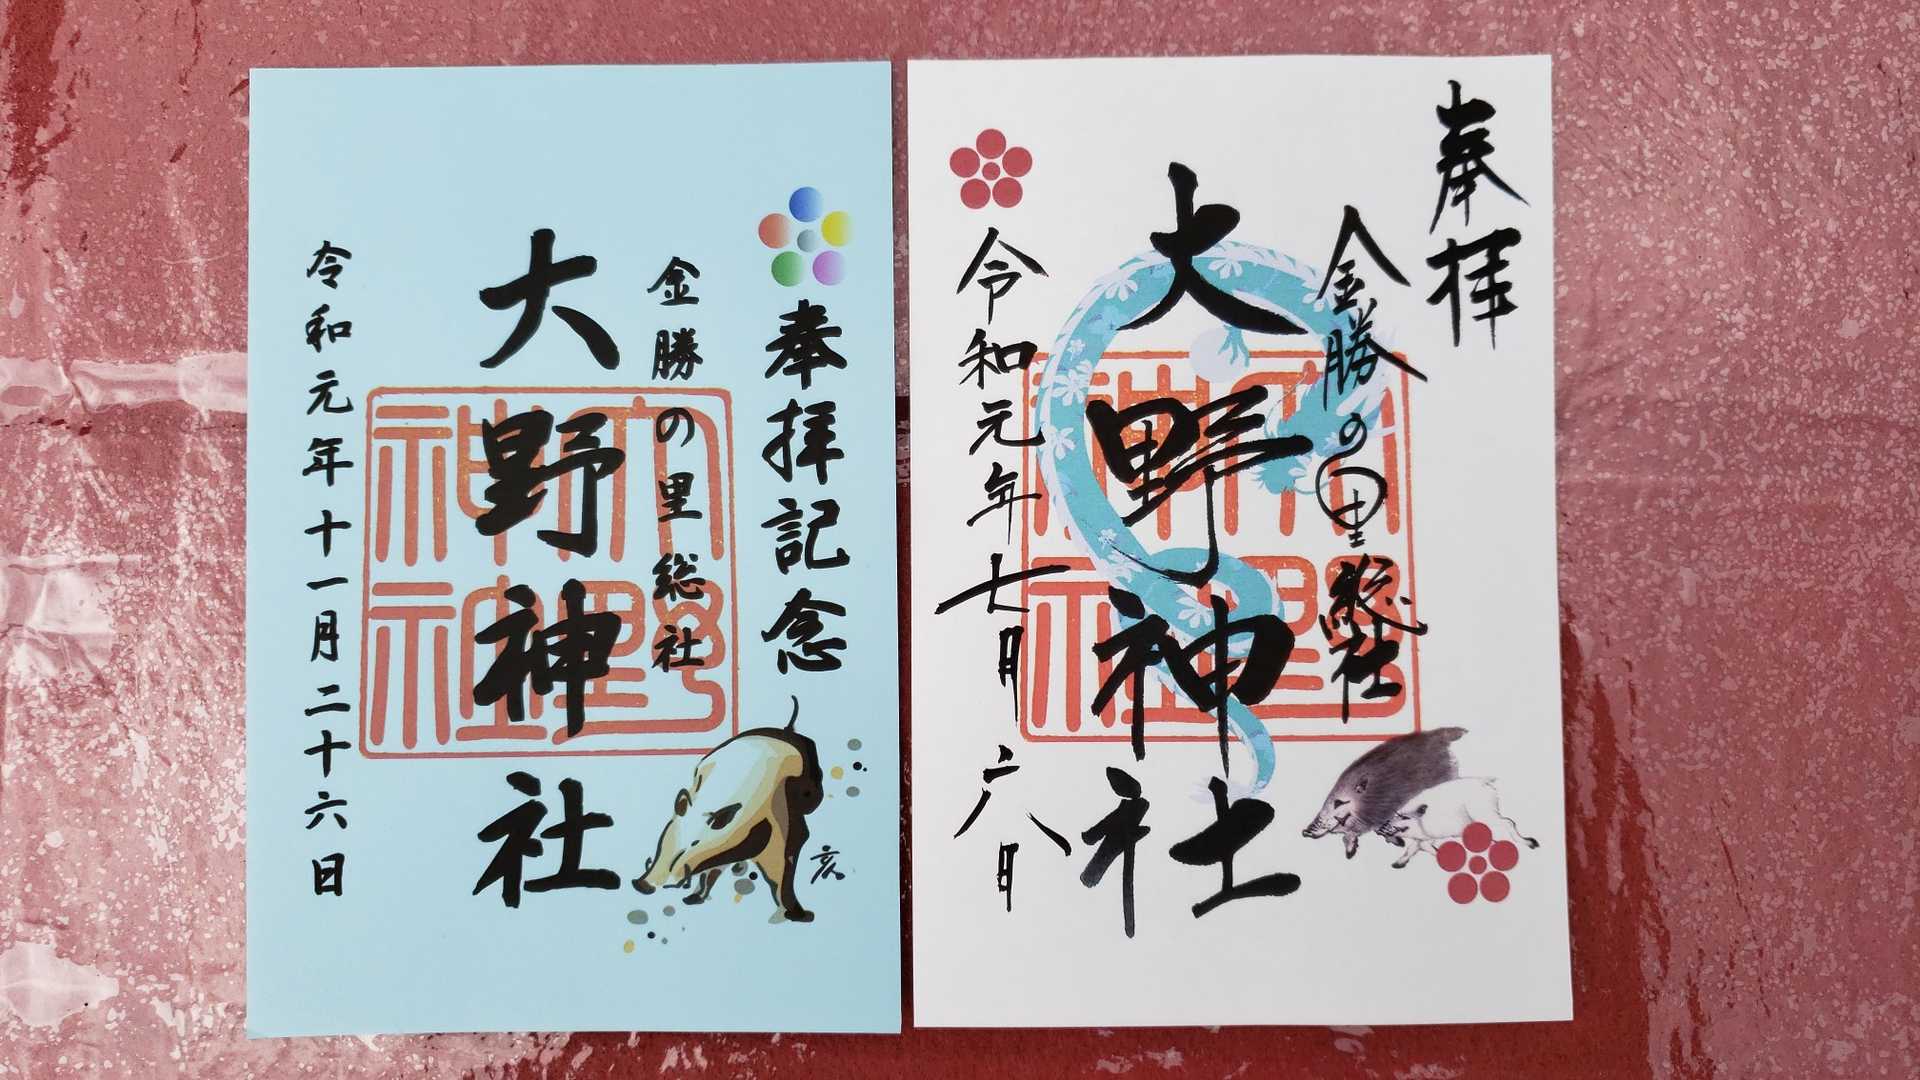 奉拝記念
金勝の里総社
大野神社
令和元年十一月二十六日
亥
大野
神社
奉拝
金勝の里総社
大野神社
令和元年七月六日
大野
神社